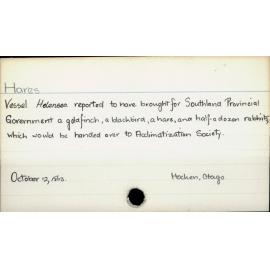 Hares
Vessel Helenslee reported to have brought for Southland Provincial
Government a goldfinch, a blackbird, a hare, and half-a-dozen rabbits
which would be handed over to Acclimatization Society.
October 12, 1863.
Hocken, Otago.